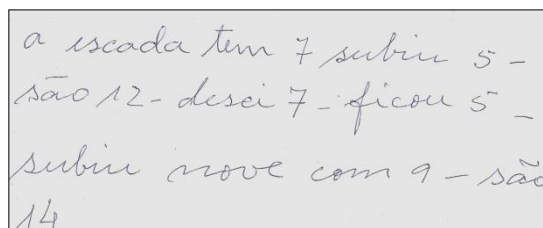 a escada tem 7 subiu 5 -
são 12 - desci 7 - ficou 5 -
subiu nove com 9 - são
14